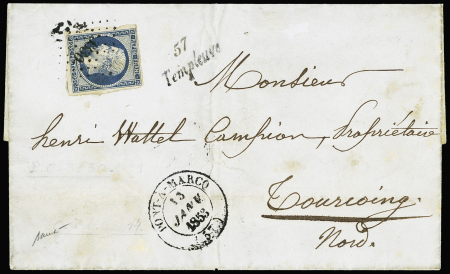 57
Templeuve
Monsieur
henri Wattel Campion, Propriétaire
PONT-A-MARCQ
13
JANV.
1853
(57)
Tourcoing.
Nord.